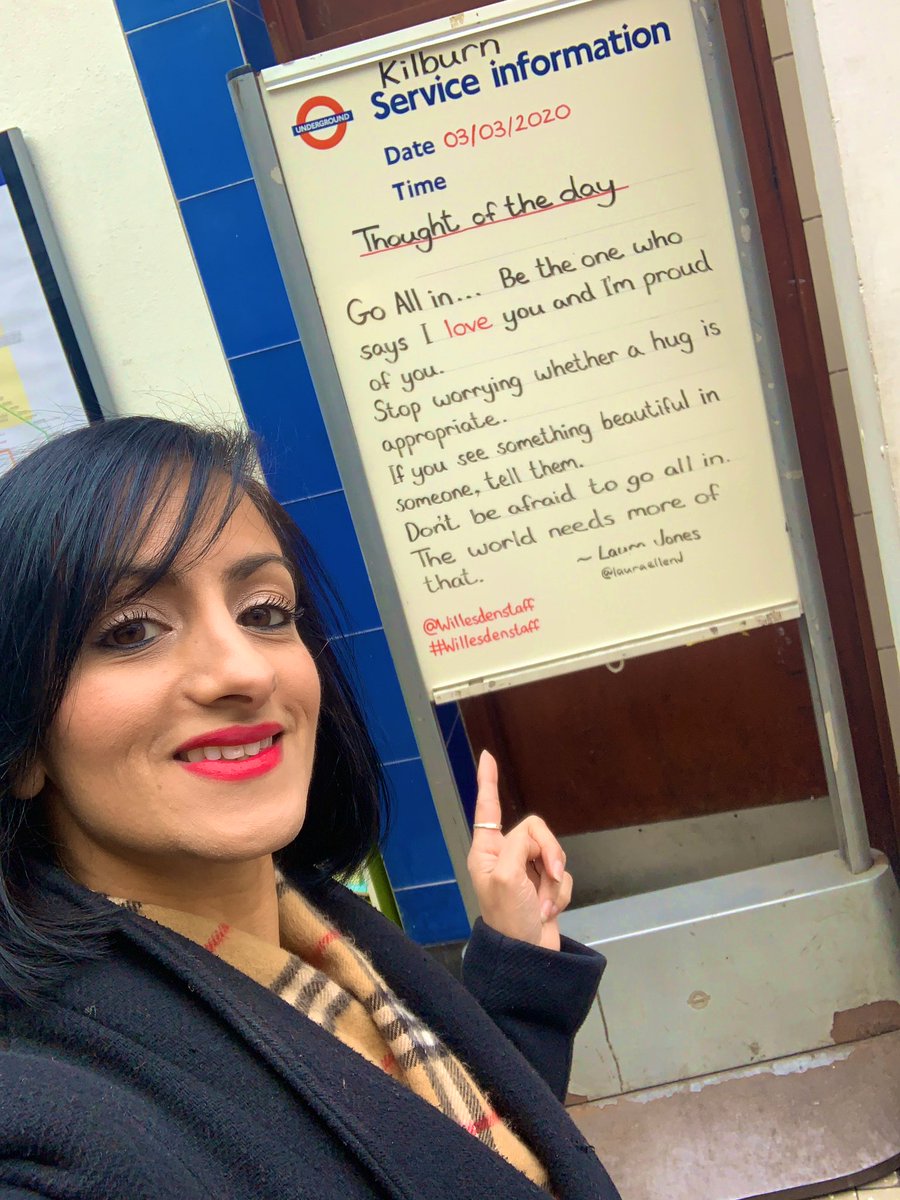 Kilburn
Service information
UNDERGROUND
Date 03/03/2020
Time
Thought of the day
Go All in... Be the one who
says I love you and I'm proud
of you.
Stop worrying whether a hug is
appropriate.
If you see something beautiful in
someone, tell them.
Don't be afraid to go all in.
The world needs more of
that.
~ Laura Jones
@lauraellend
@Willesdenstaff
#Willesdenstaff